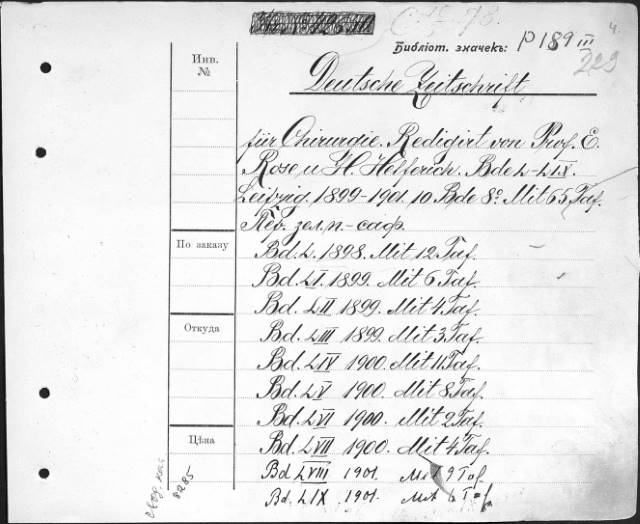 Библіот. значекъ: P 189 III
4.
223
Инв.
№
Deutsche Zeitschrift
für Chirurgie. Redigirt von Prof. E.
Rose u H. Helferich. Bde L-LIX.
Leipzig. 1899-1901. 10 Bde 8° Mit 65 Taf.
Пер. зел. п-саф.
По заказу
Bd. L. 1898. Mit 12 Taf.
Bd. LI. 1899. Mit 6 Taf.
Bd. LII 1899. Mit 4 Taf.
Откуда
Bd. LIII 1899. Mit 3 Taf.
Bd. LIV 1900. Mit 11 Taf.
Bd. LV 1900. Mit 8 Taf.
Bd. LVI 1900. Mit 2 Taf.
Цѣна
Bd. LVII 1900. Mit 4 Taf.
Bd. LVIII 1901. Mit 9 Taf.
Bd. LIX 1901. Mit 6 Taf.
8285